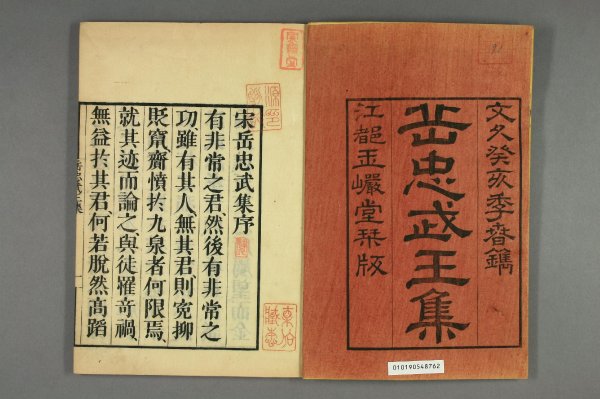 文久癸亥季春鐫
岳忠武王集
江都玉巖堂栞版
010190548762
宋岳忠武集序
有非常之君、然後有非常之
功、雖有其人、無其君、則冤抑
貶竄、齎憤於九泉者何限焉、
就其迹而論之、與徒罹奇禍、
無益於其君、何若脫然高蹈